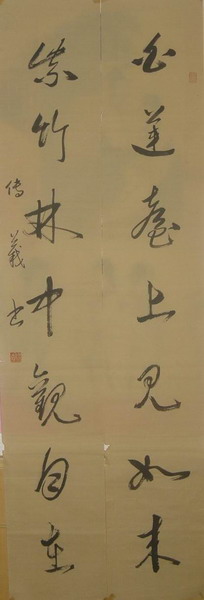 白蓮臺上見如來
紫竹林中觀自在
傳義書